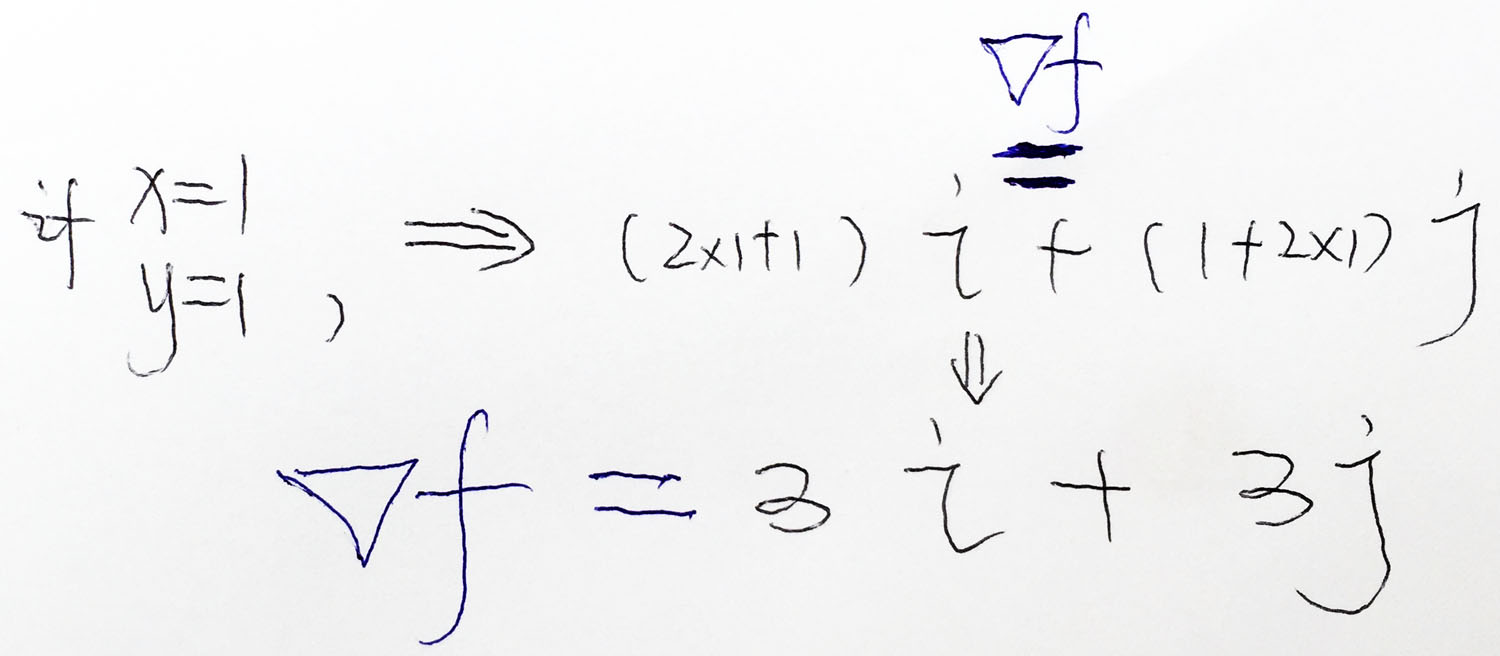 ∇f
=
if x=1
y=1 , ⇒ (2×1+1) i + (1+2×1) j
⇓
∇f = 3 i + 3 j